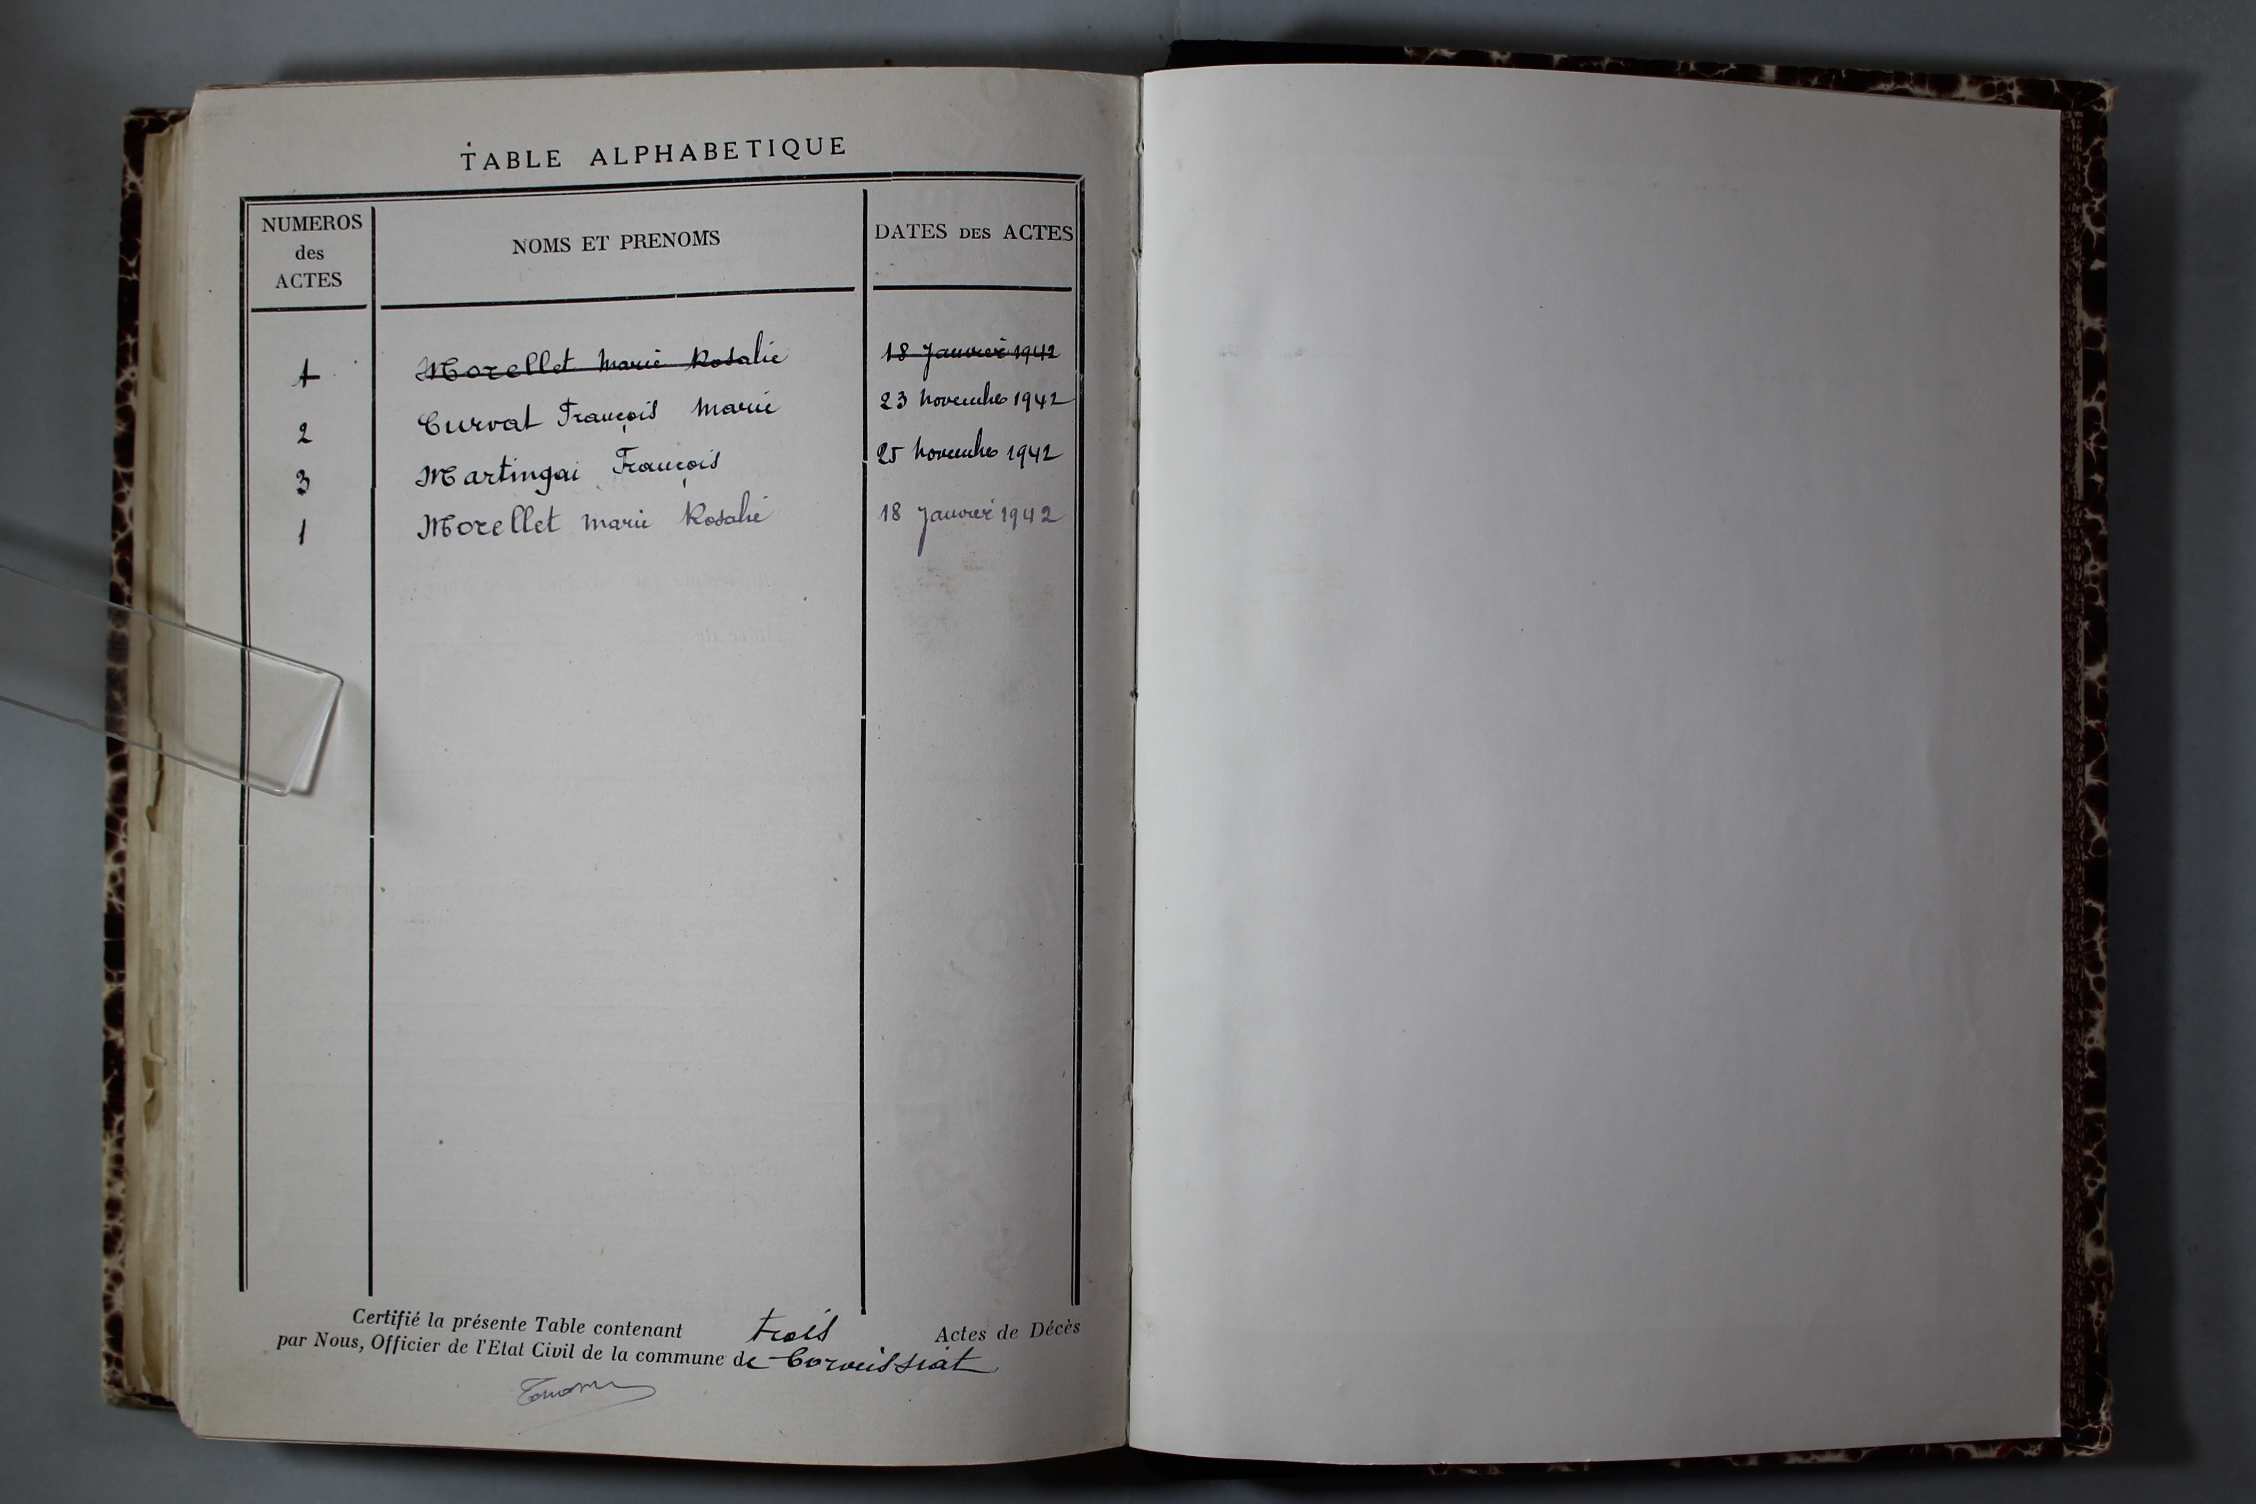 TABLE ALPHABETIQUE
NUMEROS des ACTES
NOMS ET PRENOMS
DATES DES ACTES
1 Morellet Marie Rosalie 18 Janvier 1942
2 Curvat François Marie 23 novembre 1942
3 Martingai François 25 novembre 1942
1 Morellet Marie Rosalie 18 Janvier 1942
Certifié la présente Table contenant trois Actes de Décès
par Nous, Officier de l'Etat Civil de la commune de Corveissiat